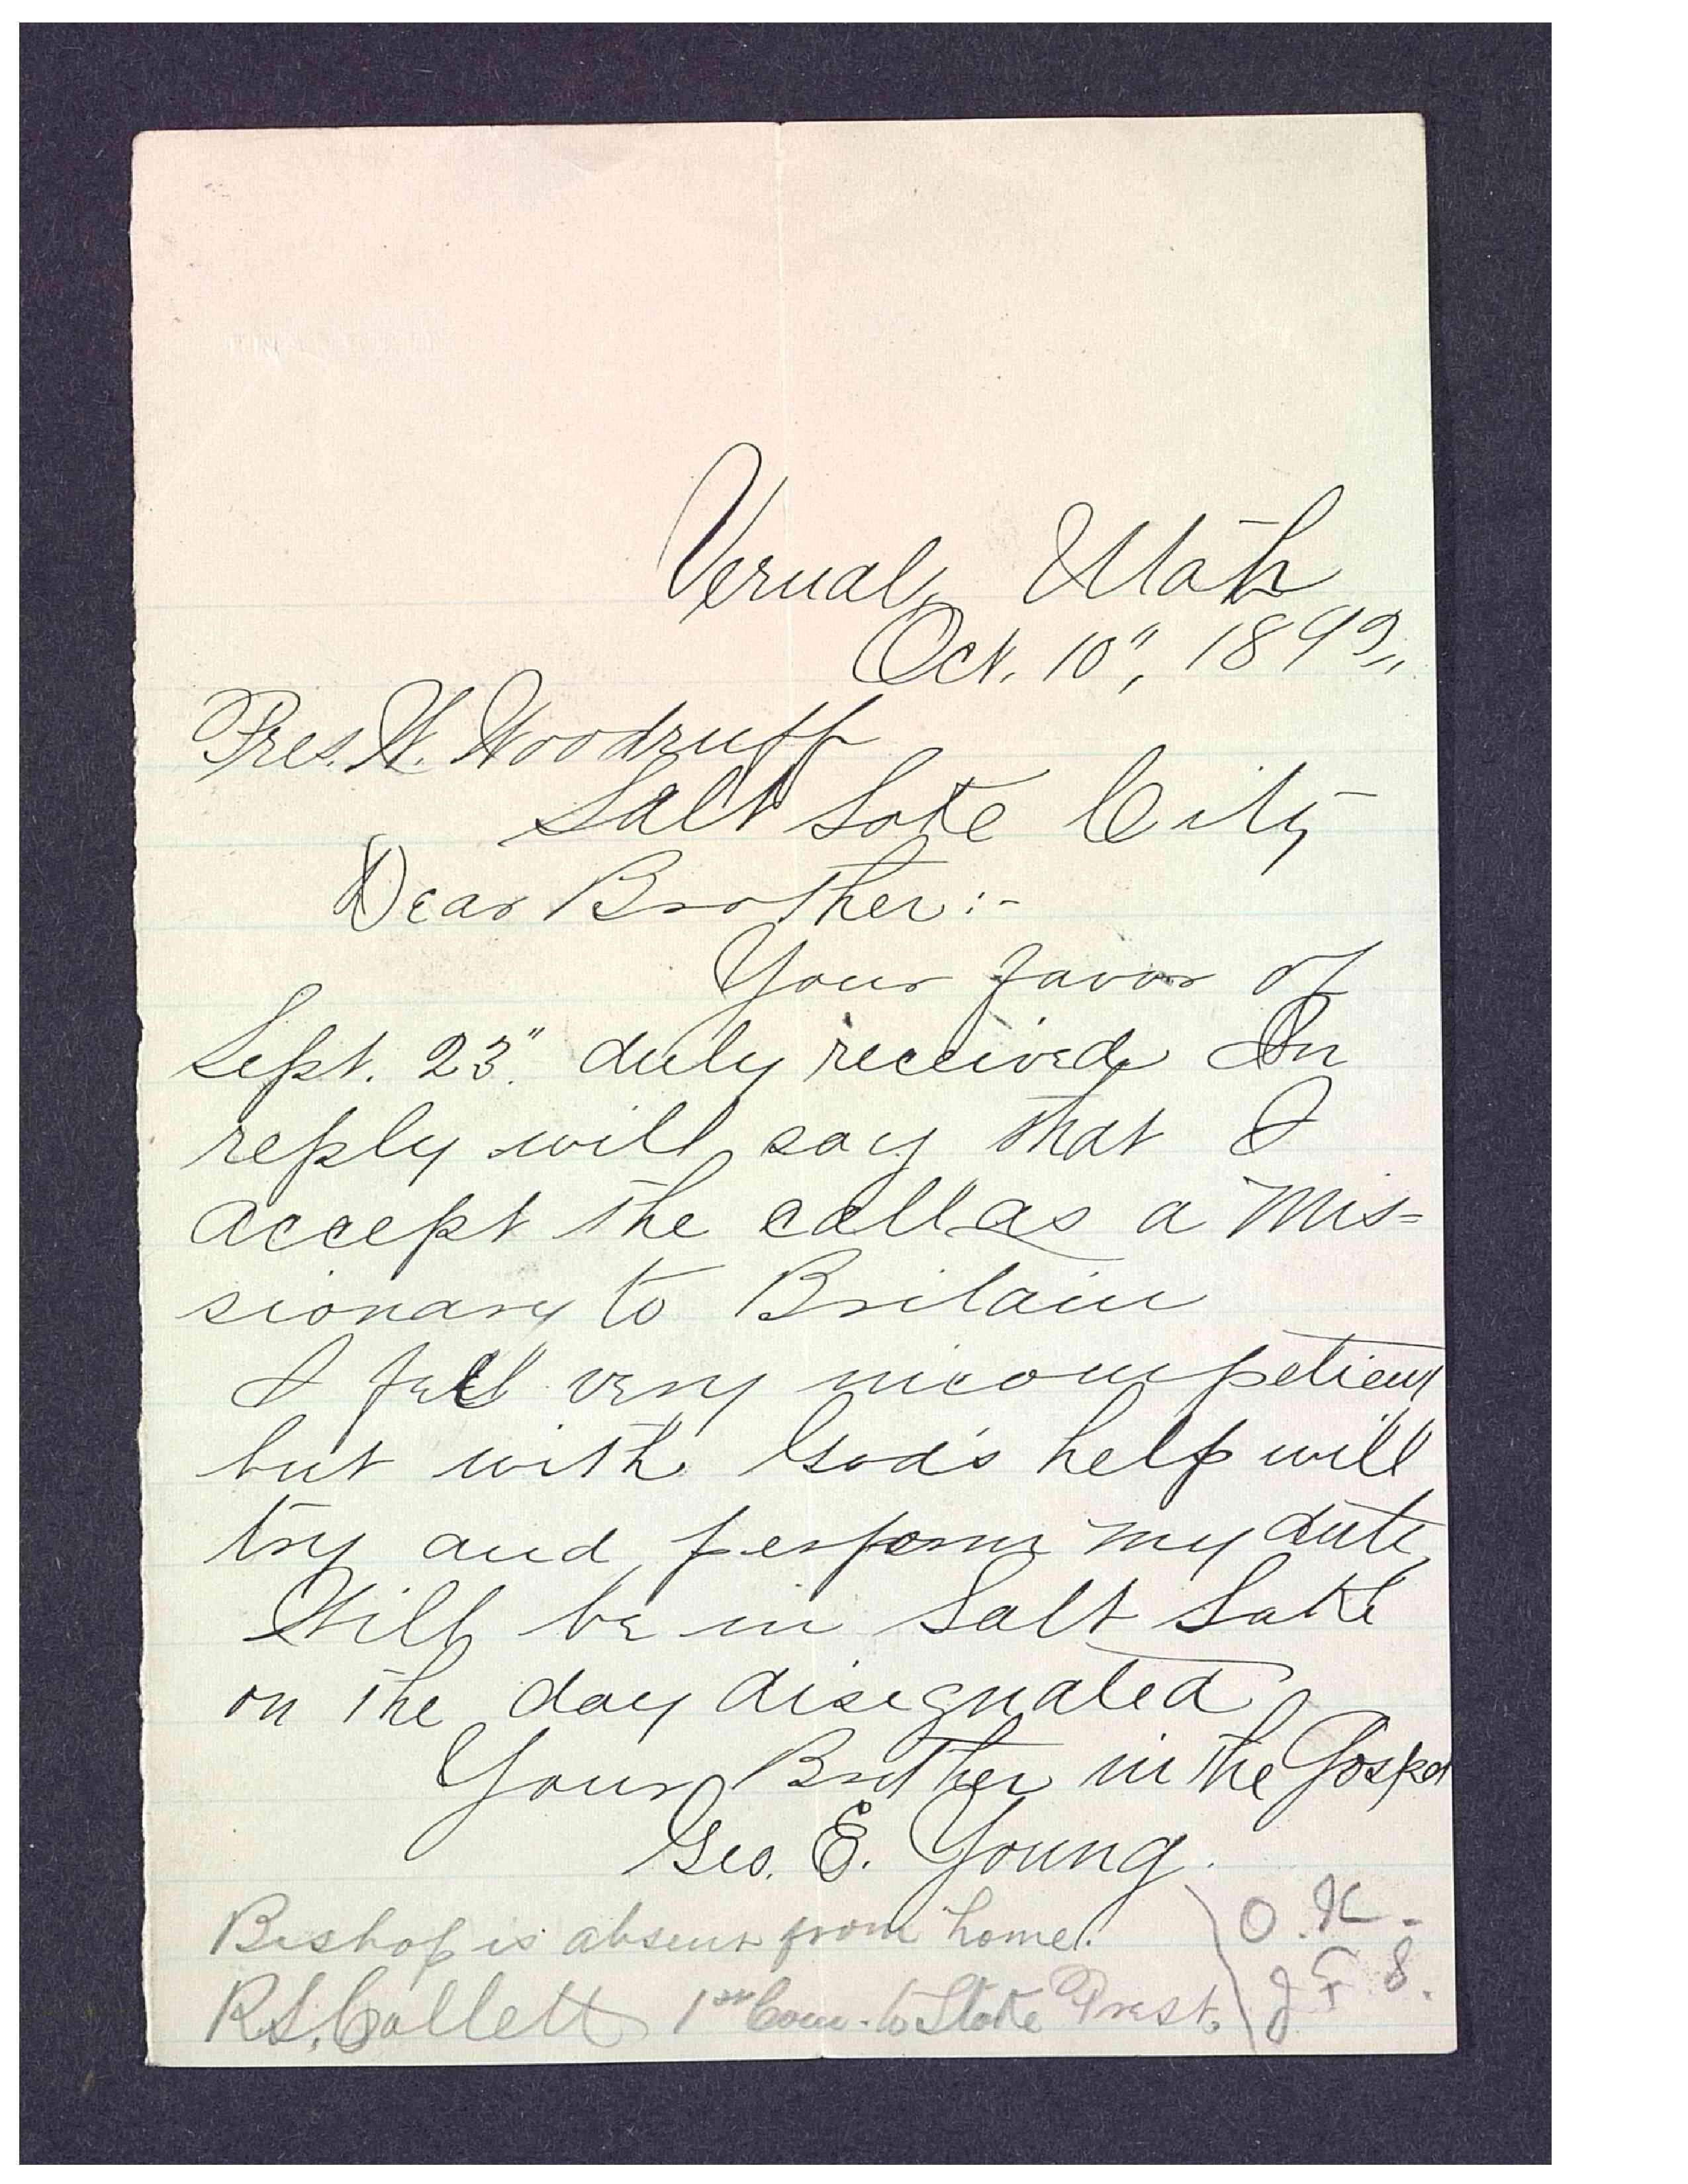 Vernal, Utah
Oct. 10",
Pres. W. Woodruff
Salt Lake City
Dear Brother:-
Your favor of
Sept. 23" duly received In
reply will say that I
accept the call as a Mis=
sionary to Britain
I feel very incompetient
but with God's help will
try and perform my duty
Will be in Salt Lake
on the day disegnated
Your Brother in the Gospel
Geo. E. Young.
Bishop is absent from home.
R.S. Collett 1st Coun. to Stake Prest.
O.K.
J F S.